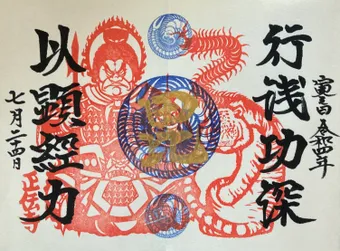 令和四年
行浅功深
以顯經力
七月二十四日
正伝寺